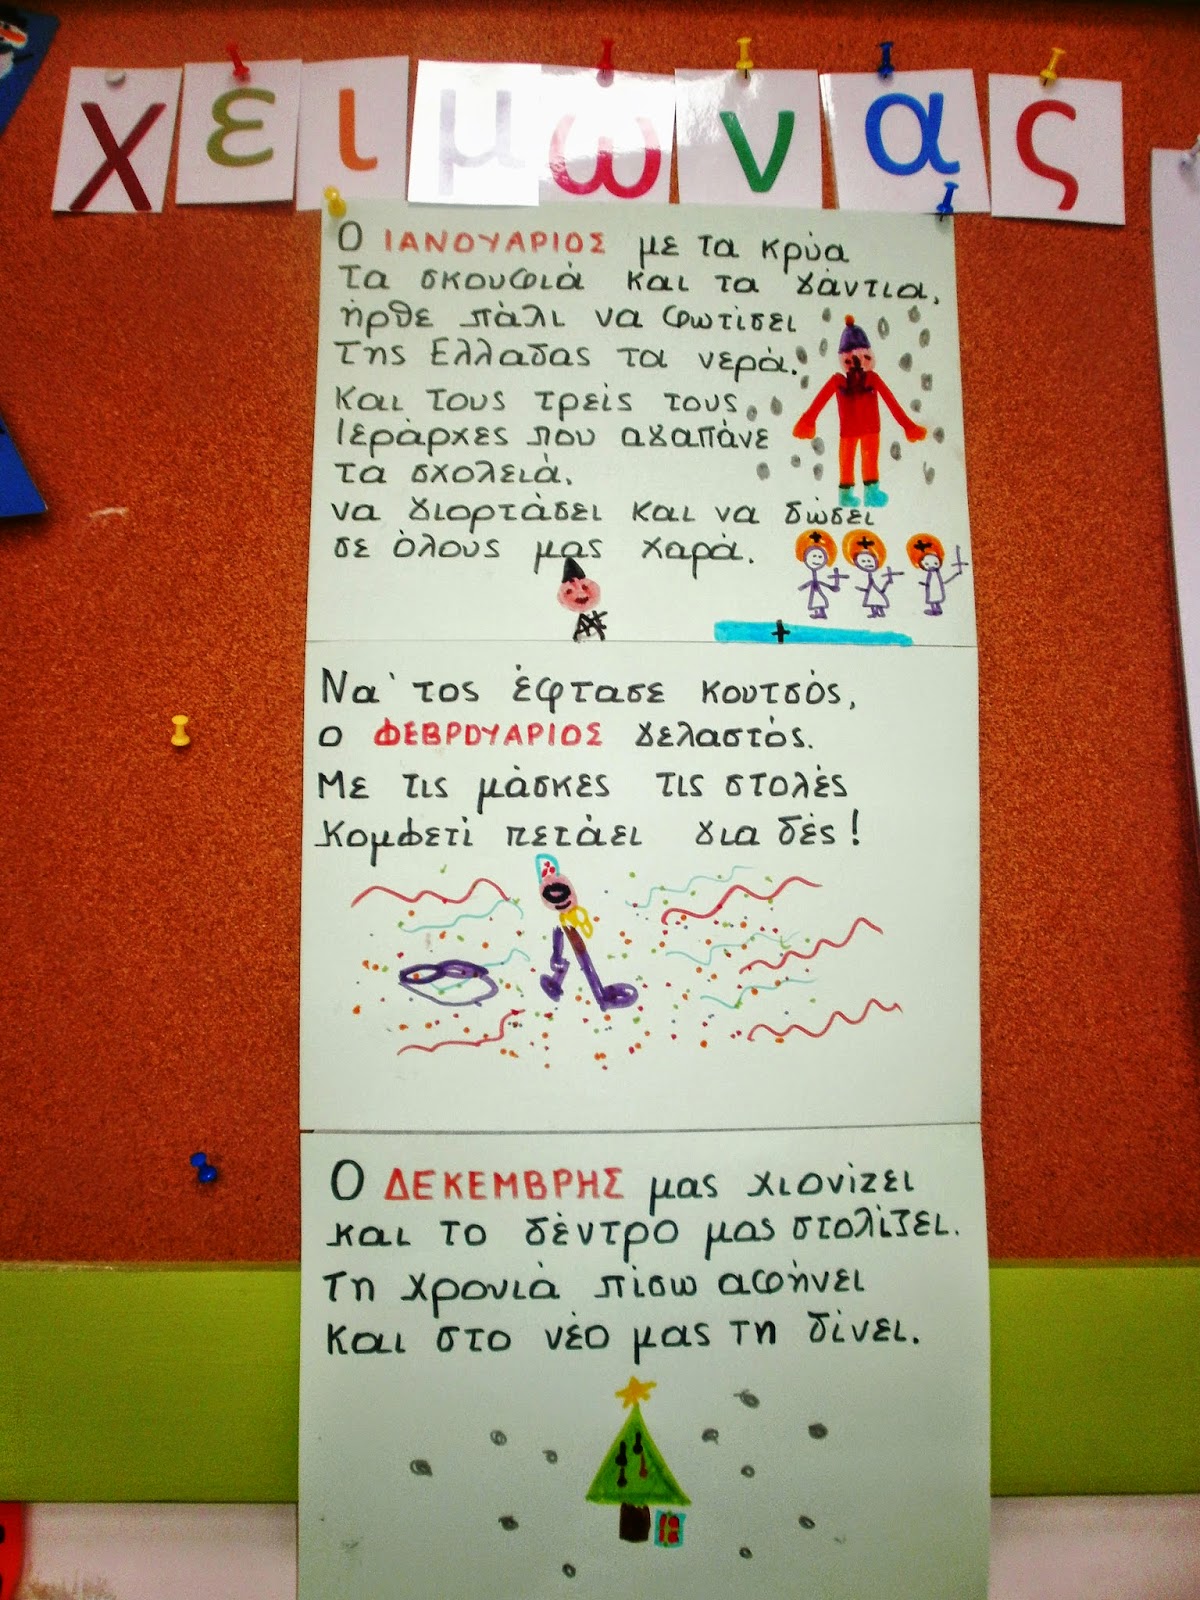 χειμώνας
Ο ΙΑΝΟΥΑΡΙΟΣ με τα κρύα
τα σκουφιά και τα γάντια,
ήρθε πάλι να φωτίσει
της Ελλαδας τα νερά.
Και τους τρείς τους
Ιεράρχες που αγαπάνε
τα σχολειά.
να γιορτάσει και να δώσει
σε όλους μας χαρά.
Να' τος έφτασε κουτσός,
ο ΦΕΒΡΟΥΑΡΙΟΣ γελαστός.
Με τις μάσκες τις στολές
κομφετί πετάει για δές!
Ο ΔΕΚΕΜΒΡΗΣ μας χιονίζει
και το δέντρο μας στολίζει.
Τη χρονιά πίσω αφήνει
και στο νέο μας τη δίνει.